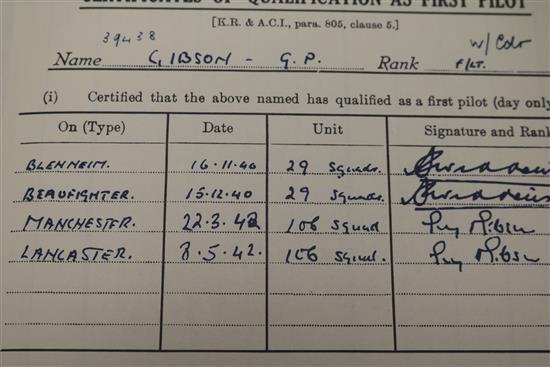 CERTIFICATES OF QUALIFICATION AS FIRST PILOT
[K.R. & A.C.I., para. 805, clause 5.]
39438
W/Cdr
Name GIBSON - G.P. Rank F/LT.
(i) Certified that the above named has qualified as a first pilot (day only
On (Type) Date Unit Signature and Rank
BLENHEIM. 16.11.40 29 Squadn.
BEAUFIGHTER. 15.12.40 29 Squadn.
MANCHESTER. 22.3.42 106 Squad Guy Gibson
LANCASTER. 8.5.42. 106 Squad. Guy Gibson